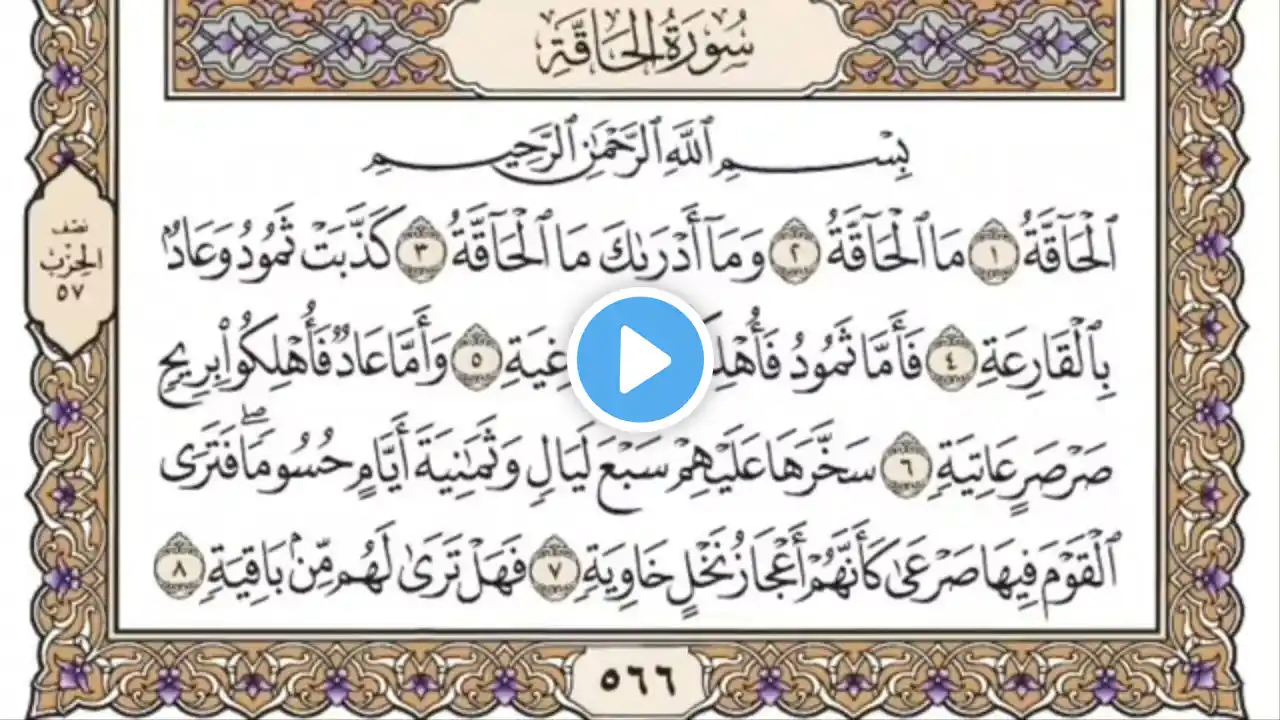 سُورَةُ الحَاقَّةِ
بِسْمِ ٱللَّهِ ٱلرَّحْمَٰنِ ٱلرَّحِيمِ
ٱلْحَآقَّةُ ١ مَا ٱلْحَآقَّةُ ٢ وَمَآ أَدْرَىٰكَ مَا ٱلْحَآقَّةُ ٣ كَذَّبَتْ ثَمُودُ وَعَادٌۢ
بِٱلْقَارِعَةِ ٤ فَأَمَّا ثَمُودُ فَأُهْلِكُ غِيَةِ ٥ وَأَمَّا عَادٌ فَأُهْلِكُوا۟ بِرِيحٍ
صَرْصَرٍ عَاتِيَةٍ ٦ سَخَّرَهَا عَلَيْهِمْ سَبْعَ لَيَالٍ وَثَمَٰنِيَةَ أَيَّامٍ حُسُومًاۖ فَتَرَى
ٱلْقَوْمَ فِيهَا صَرْعَىٰ كَأَنَّهُمْ أَعْجَازُ نَخْلٍ خَاوِيَةٍ ٧ فَهَلْ تَرَىٰ لَهُم مِّنۢ بَاقِيَةٍ ٨
نصف
الحِزْب
٥٧
٥٦٦